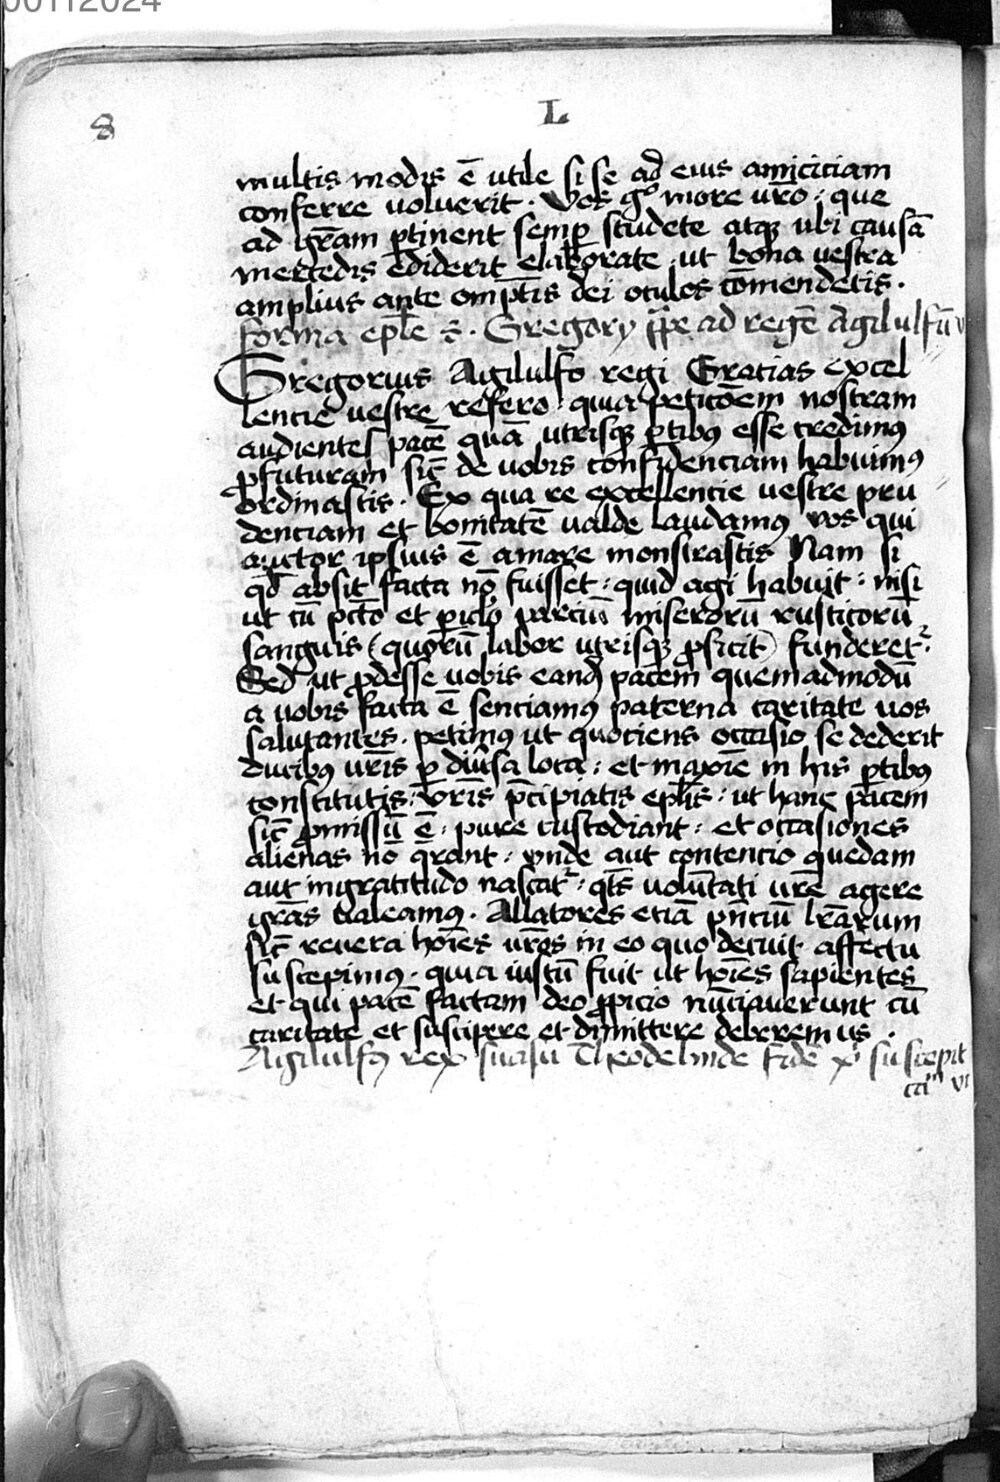 00112024
8
L
multis modis ē utile si se ad eius amiciciam
conferre voluerit . Vos gͦ more vr̄o : que
ad gr̄am ꝑtinent semꝑ studete atqꝫ ubi causā
mercedis ediderit elaborate . ut bona vestra
amplius ante omp̄tis dei oculos cōmendetis .
forma ep̄le s̄ . Gregory p̄pe ad regē Agilulfū v
Gregorius Agilulfo regi Gracias excel
lencie vestre refero . quia peticōem nostram
audientes pacē quā utrisqꝫ ꝑtibꝰ esse credimꝰ
ꝓfuturam sic̄ de vobis confidenciam habuimꝰ
ordinastis . Ex qua re excellencie vestre pru
denciam et bonitatē valde laudamꝰ vos qui
auctor ipsius ē amare monstrastis Nam si
qd̄ absit facta nō fuisset : quid agi habuit : nisi
ut cū pctō et ꝑiclō parciū miserorū rusticorū
sanguis ( quorū labor utrisqꝫ ꝓficit ) funderet᷑ .
Sed ut ꝓdesse vobis eandꝫ pacem quemadmodū
a vobis facta ē senciamꝰ paterna caritate vos
salutantes . petimꝰ ut quociens occasio se dederit
ducibꝰ vr̄is ꝑ diūsa loca : et maxīe in his ꝑtibꝰ
constitutis : vr̄is p̄cipiatis ep̄lis : ut hanc pacem
sic̄ ꝓmissū ē : pure custodiant : et occasiones
alienas nō q̄rant : vnde aut contencio quedam
aut ingratitudo nascat᷑ : qt̄s volūtati vr̄e agere
gr̄as valeamꝰ . Allatores etiā p̄nciū lr̄arum
sic̄ revera hoīes vr̄os in eo quo decuit affectu
suscepimꝰ . quia iustū fuit ut hoīes sapientes
et qui pacē factam deo ꝓpicio nūciaverunt cū
caritate et suscipere et dimittere deberemus .
Agilulfꝰ rex suasu Theodelinde fidē xͥ suscepit
caᵐ vi